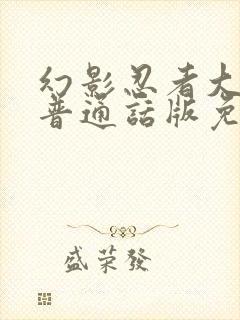 幻影忍者大
普通話版免
盛荣發